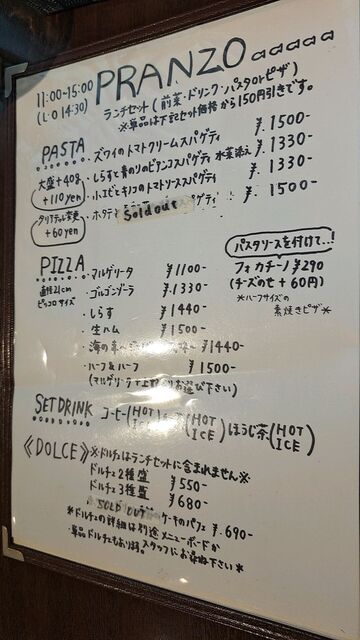 11:00~15:00
(L·O 14:30)
PRANZO
ランチセット(前菜・ドリンク・パスタorピザ)
※単品は下記セット価格から150円引きです。
PASTA
大盛+40g
+110yen
タリアテッレ変更
+60yen
・ズワイのトマトクリームスパゲティ ¥.1500-
・しらすと青のりのビアンコスパゲティ 水菜添え ¥.1330-
・小エビとキノコのトマトソーススパゲティ ¥.1330-
・ホタテと Sold out パゲティ ¥.1500
PIZZA
直径21cm
ピッコロサイズ
・マルゲリータ ¥1100-
・ゴルゴンゾーラ ¥.1330-
・しらす ¥1440-
・生ハム ¥1500-
・海の幸 ¥1440-
・ハーフ&ハーフ ¥1500-
(マルゲリータ お選び下さい)
パスタソースを付けて…!
フォカチーノ ¥290
(チーズのせ+60円)
*ハーフサイズの
素焼きピザ*
SET DRINK
コーヒー(HOT ICE) (HOT ICE) ほうじ茶(HOT ICE)
《DOLCE》
※ドルチェはランチセットに含まれません※
ドルチェ2種盛 ¥550-
ドルチェ3種盛 ¥680-
SOLD OUT ケーキのパフェ ¥.690-
*ドルチェの詳細は別途メニューボードか
・単品ドルチェもあります。スタッフにお尋ね下さい*